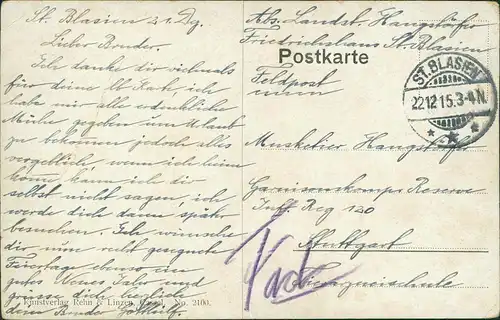 St. Blasien 21. Dez.
Lieber Bruder.
Ich danke dir vielmals
für deine lb. Karte, ich
habe mir alle erdenkliche
Mühe gegeben um Urlaub
zu bekommen jedoch alles
vergeblich, wann ich heim
kom, kann ich dir
selbst nicht sagen, ich
werde dich dann später
besuchen. Ich wünsche
dir nun recht gesegnete
Feiertage ebenso ein
gutes Neues Jahr und
grüsse dich herzlich
dein Bruder Gottlilf.
Kunstverlag Rehn & Linzen, No. 2100.
Abs. Landst. Hangstörfer
Friedrichshaus St. Blasien
Postkarte
Feldpost
ST. BLASIEN
22.12.15.3-4N.
Musketier Hangstörfer
Garnisonskomp. Reserve
Inft. Reg 120
Stuttgart